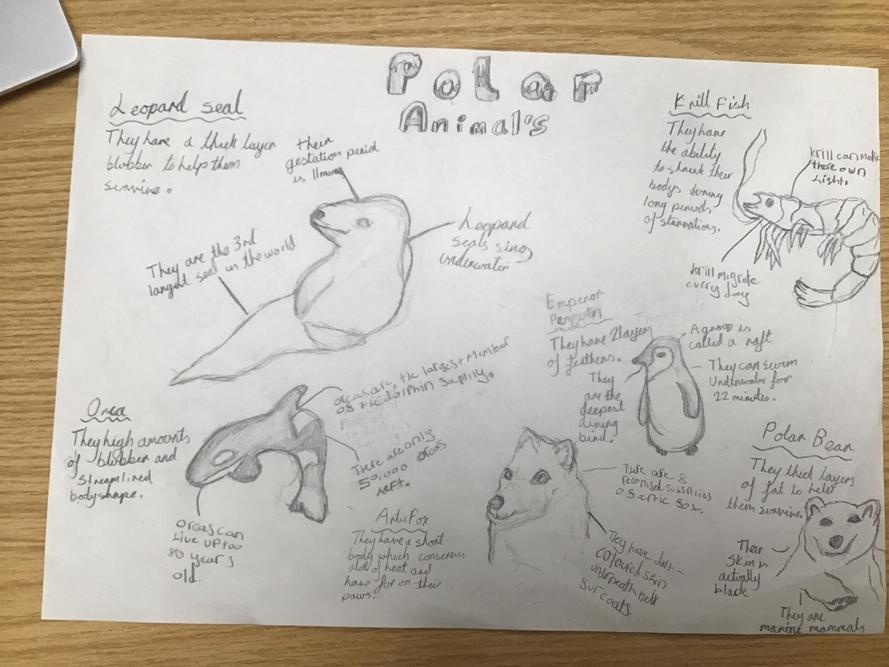 Polar
Animal's
Leopard seal
They have a thick layer
blubber to help them
survive.
their
gestation period
is 11
They are the 3rd
largest seal in the world
Leopard
seals sing
underwater
Krill Fish
They have
the ability
to shrink their
bodys during
long periods
of starvation.
krill can make
there own
light.
krill migrate
every day
Emperor
Penguin
They have 2 layers
of feathers.
They
are the
deepest
diving
bird.
A group is
called a raft
They can swim
Underwater for
22 minutes.
Orca
They high amounts
of blubber and
streamlined
bodyshape.
orcas are the largest
of the dolphin
There are only
50,000 orcas
left.
orcas can
Live up too
80 years
old.
ArticFox
They have a short
body which conserves
alot of heat and
have for on their
paws.
There are 8
of artic fox.
They have dark
coloured skin
underneath
Polar Bear
They thick layers
of fat to help
them survive.
Their
skin is
actually
black
They are
marine mammals